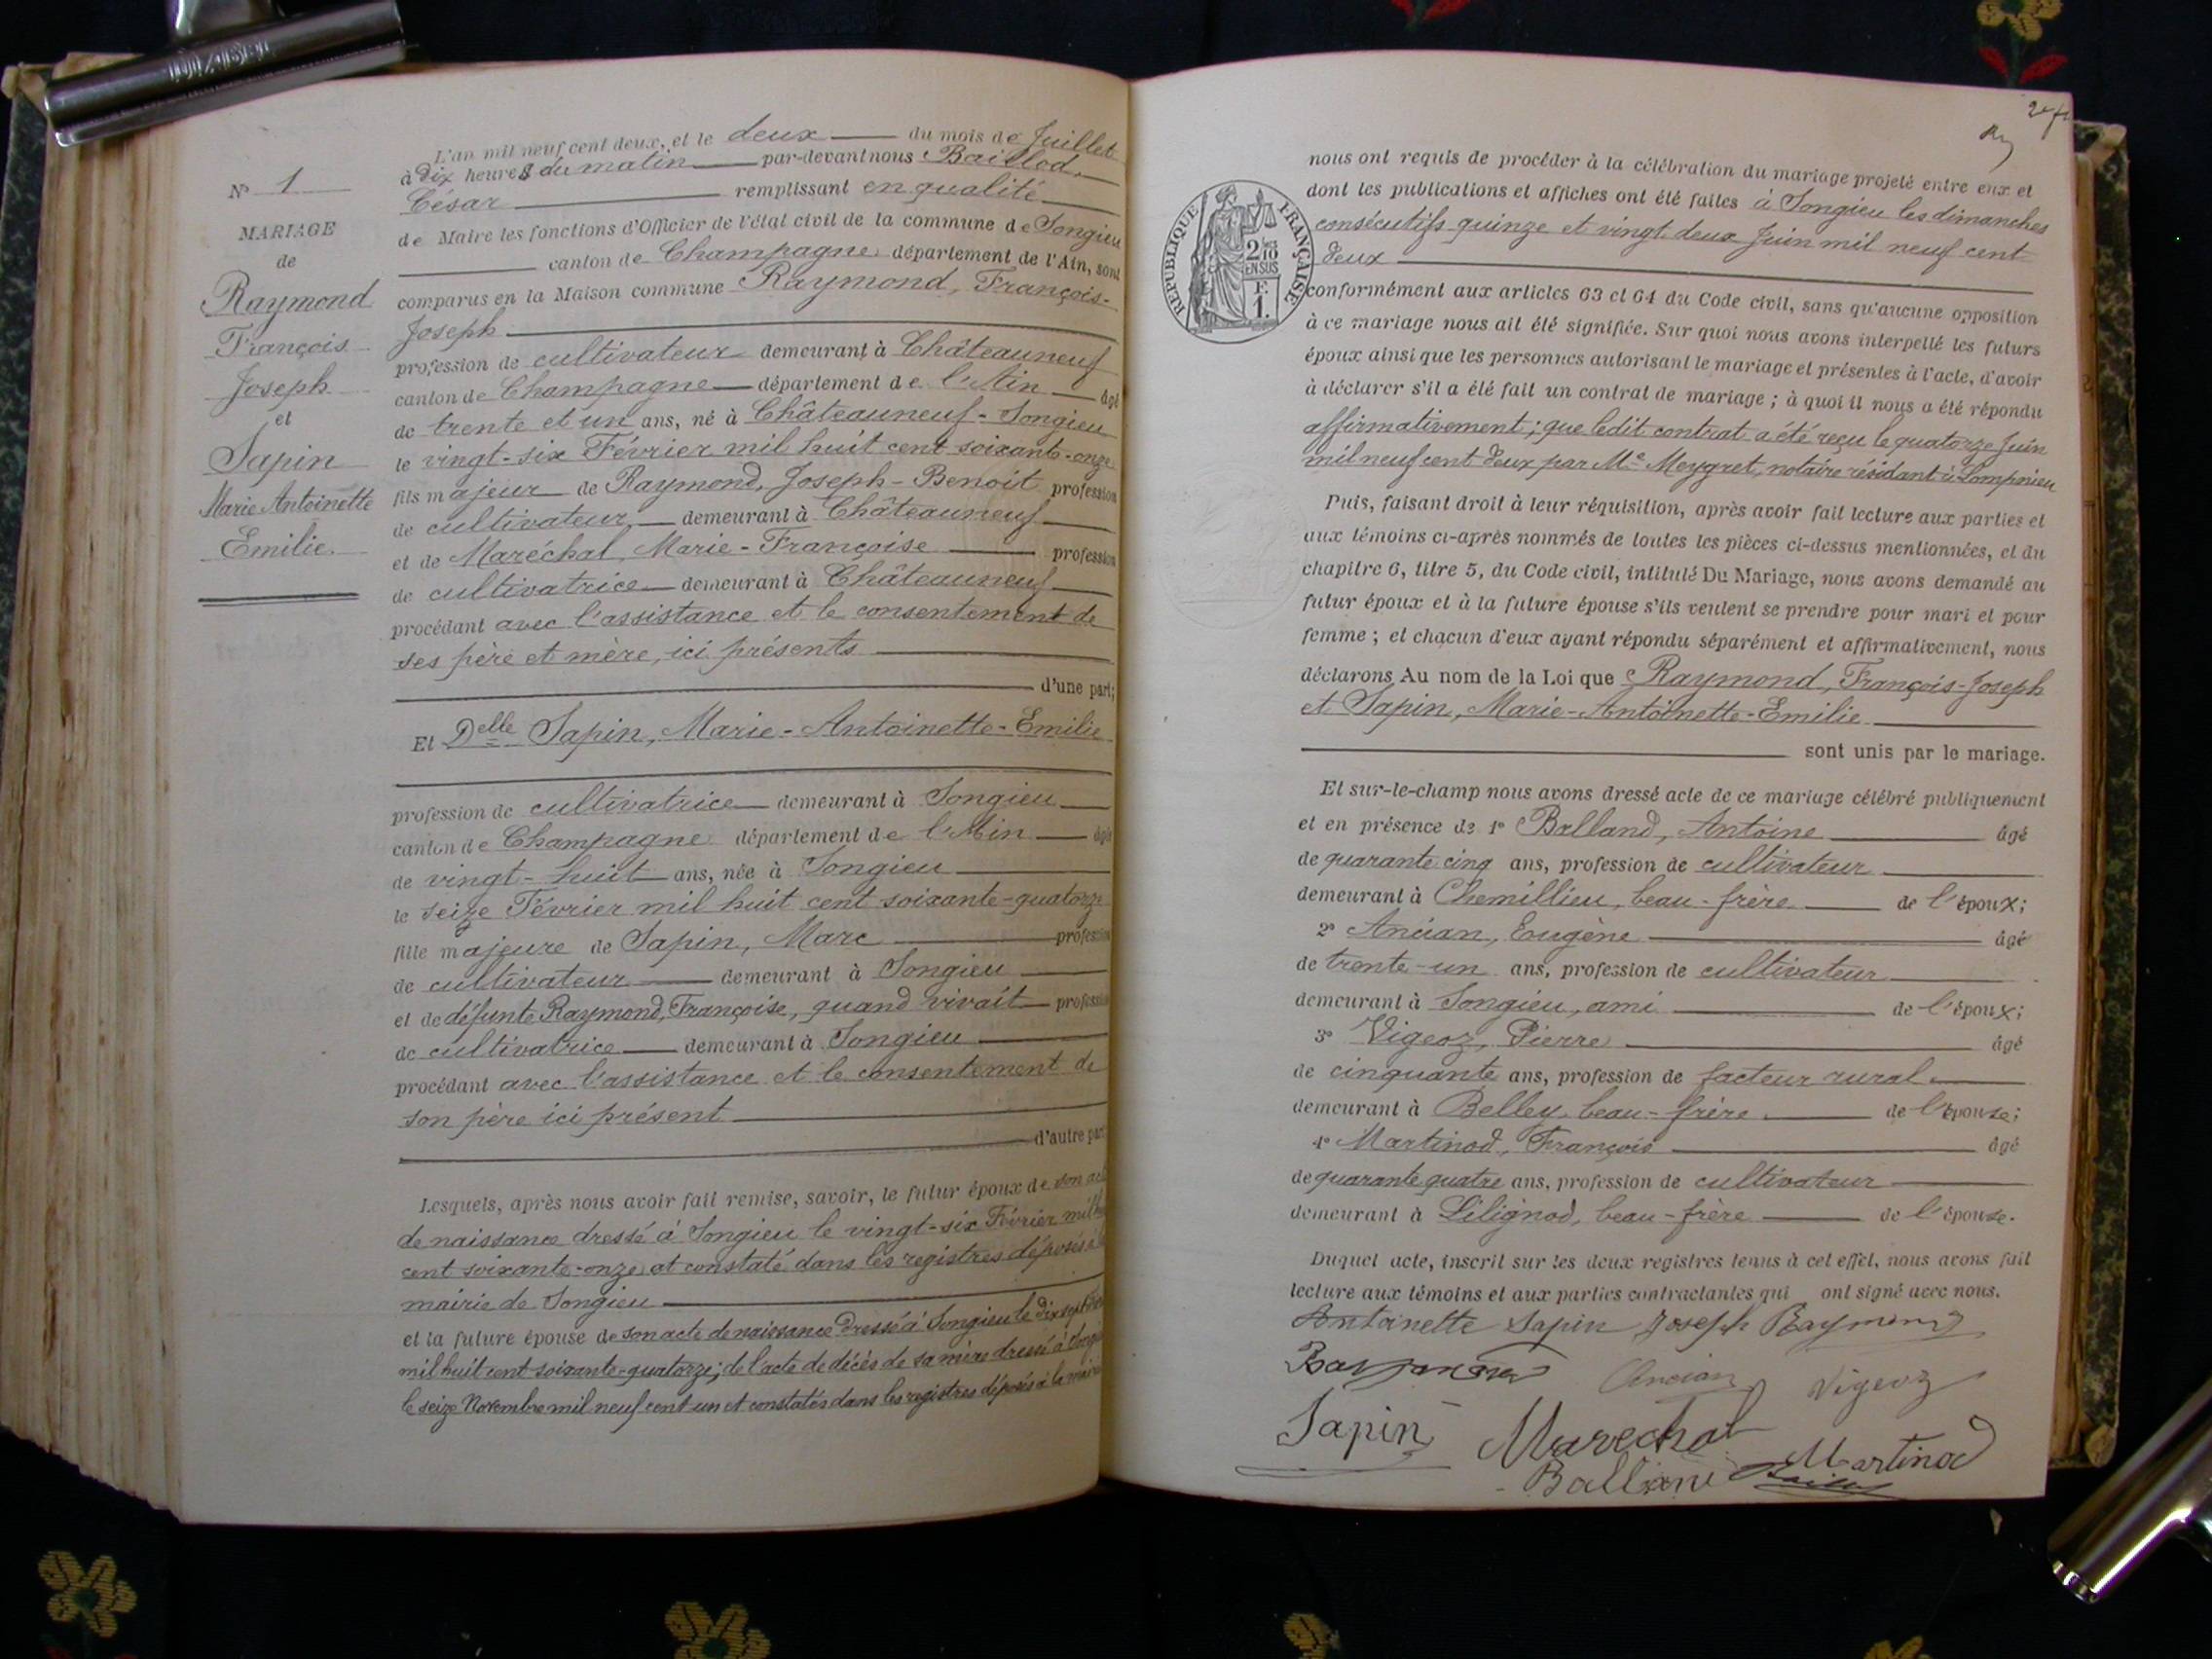 N° 1
MARIAGE
de
Raymond
François
Joseph
et
Sapin
Marie Antoinette
Emilie.
L'an mil neuf cent deux, et le deux du mois de Juillet
à dix heures du matin par-devant nous Baillod,
César remplissant en qualité
de Maire les fonctions d'Officier de l'état civil de la commune de Songieu
canton de Champagne département de l'Ain, sont
comparus en la Maison commune Raymond, François-
Joseph
profession de cultivateur demeurant à Châteauneuf
canton de Champagne département de l'Ain âgé
de trente et un ans, né à Châteauneuf-Songieu
le vingt-six Février mil huit cent soixante-onze
fils majeur de Raymond, Joseph-Benoit profession
de cultivateur, demeurant à Châteauneuf
et de Maréchal, Marie-Françoise profession
de cultivatrice demeurant à Châteauneuf
procédant avec l'assistance et le consentement de
ses père et mère, ici présents
d'une part;
Et Delle Sapin, Marie-Antoinette-Emilie
profession de cultivatrice demeurant à Songieu
canton de Champagne département de l'Ain âgée
de vingt-huit ans, née à Songieu
le seize Février mil huit cent soixante-quatorze
fille majeure de Sapin, Marc profession
de cultivateur demeurant à Songieu
et de défunte Raymond, Françoise, quand vivait profession
de cultivatrice demeurant à Songieu
procédant avec l'assistance et le consentement de
son père ici présent
d'autre part
Lesquels, après nous avoir fait remise, savoir, le futur époux de son acte
de naissance dressé à Songieu le vingt-six Février mil
cent soixante-onze et constaté dans les registres déposés à la
mairie de Songieu
et la future épouse de son acte de naissance dressé à Songieu le dix sept
mil huit cent soixante-quatorze; de l'acte de décès de sa mère dressé à
le seize Novembre mil neuf cent un et constatés dans les registres déposés à la mairie
RÉPUBLIQUE FRANÇAISE
2/10
EN SUS
F.
1.
nous ont requis de procéder à la célébration du mariage projeté entre eux et
dont les publications et affiches ont été faites à Songieu les dimanches
consécutifs quinze et vingt deux Juin mil neuf cent
deux
conformément aux articles 63 et 64 du Code civil, sans qu'aucune opposition
à ce mariage nous ait été signifiée. Sur quoi nous avons interpellé les futurs
époux ainsi que les personnes autorisant le mariage et présentes à l'acte, d'avoir
à déclarer s'il a été fait un contrat de mariage ; à quoi il nous a été répondu
affirmativement ; que ledit contrat a été reçu le quatorze Juin
mil neuf cent deux par Me Meygret, notaire résidant à Lompnieu
Puis, faisant droit à leur réquisition, après avoir fait lecture aux parties et
aux témoins ci-après nommés de toutes les pièces ci-dessus mentionnées, et du
chapitre 6, titre 5, du Code civil, intitulé Du Mariage, nous avons demandé au
futur époux et à la future épouse s'ils veulent se prendre pour mari et pour
femme ; et chacun d'eux ayant répondu séparément et affirmativement, nous
déclarons Au nom de la Loi que Raymond, François-Joseph
et Sapin, Marie-Antoinette-Emilie
sont unis par le mariage.
Et sur-le-champ nous avons dressé acte de ce mariage célébré publiquement
et en présence de 1° Balland, Antoine âgé
de quarante cinq ans, profession de cultivateur
demeurant à Chemillieu, beau-frère de l'époux;
2° Ancian, Eugène âgé
de trente-un ans, profession de cultivateur
demeurant à Songieu, ami de l'époux;
3° Vigeoz, Pierre âgé
de cinquante ans, profession de facteur rural
demeurant à Belley, beau-frère de l'épouse;
4° Martinod, François âgé
de quarante quatre ans, profession de cultivateur
demeurant à Lilignod, beau-frère de l'épouse.
Duquel acte, inscrit sur les deux registres tenus à cet effet, nous avons fait
lecture aux témoins et aux parties contractantes qui ont signé avec nous.
Antoinette Sapin Joseph Raymond
Ancian Vigeoz
Sapin Marechal Martinod